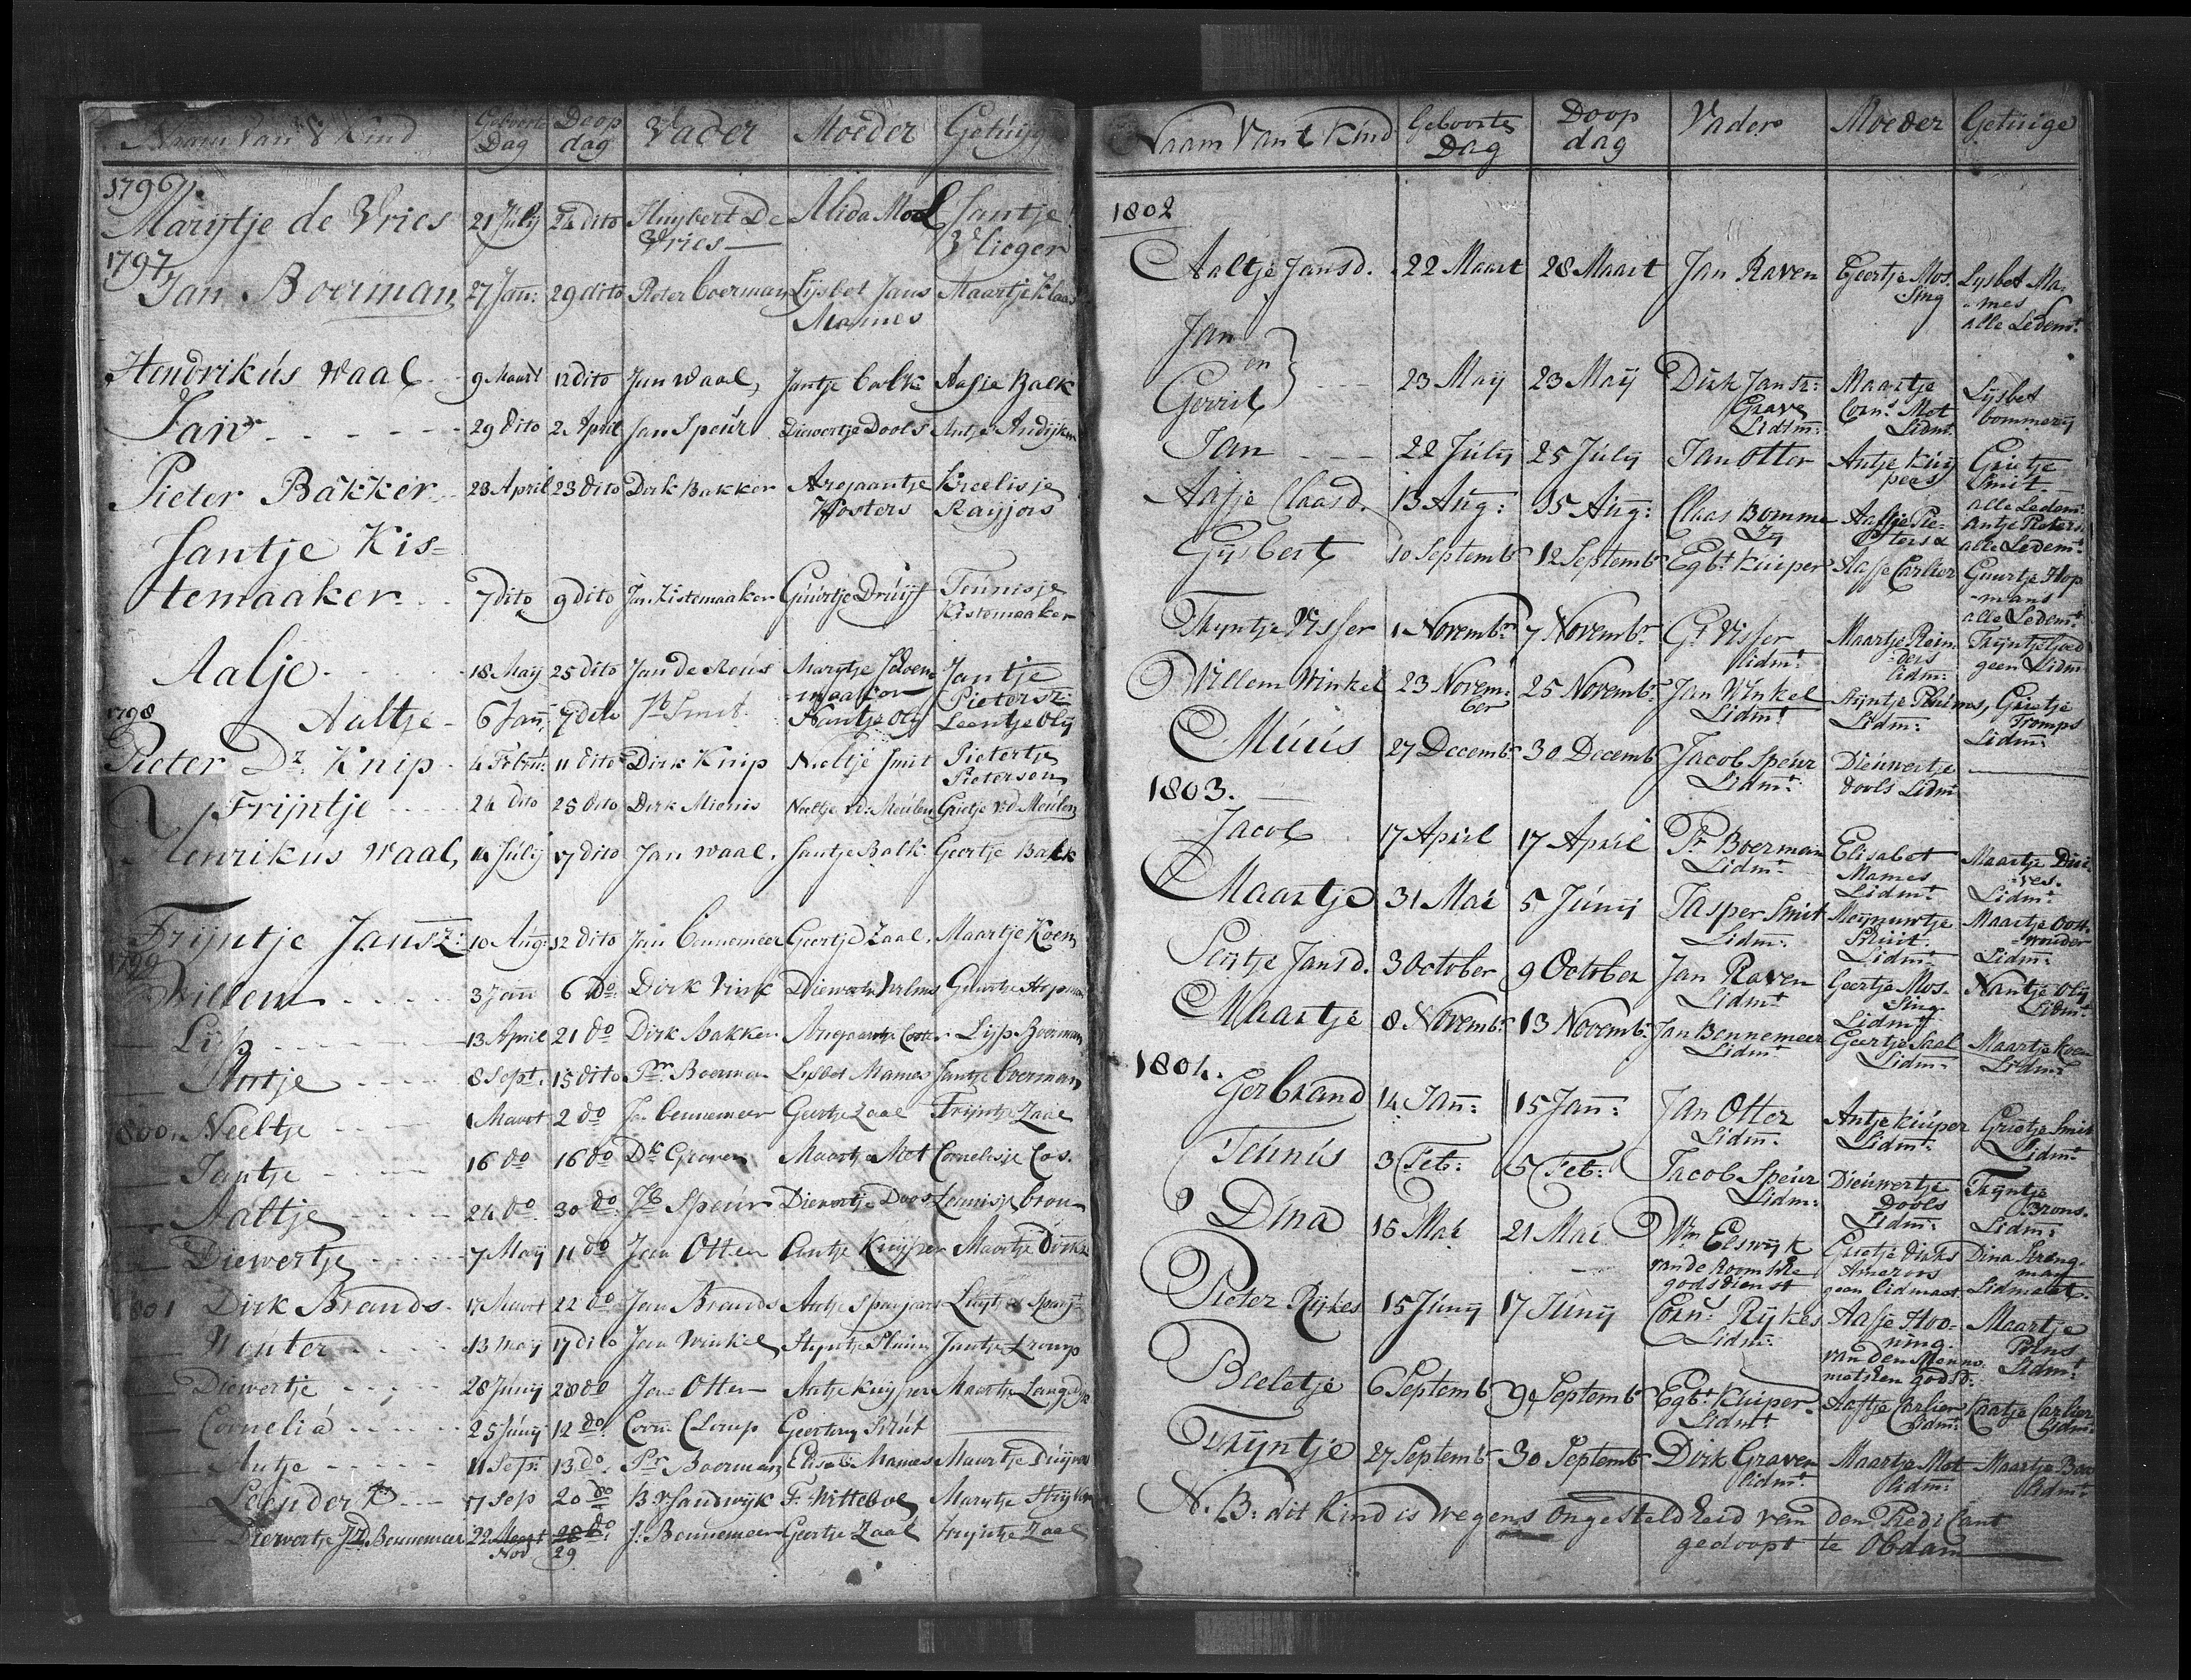 Naam van 't Kind Geboorte Dag Doop dag Vader Moeder Getuijge
1796
Marijtje de Vries 21 Julij 24 dito Huijbert De Vries Alida Mol Jantje Vlieger
1797
Jan Boerman 27 Jan: 29 dito Pieter boerman Lijsbet Jans Mames Maartje Klaas
Hendrikus Waal 9 Maart 12 dito Jan Waal, Jantje balk Aafje Balk
Jan 29 dito 2 April Jan Speúr Diewertje Dools Antje Andijker
Pieter Bakker 23 April 23 dito Dirk Bakker Aregaantje Kosters Kreelisje
Jantje Kis=
temaaker 7 dito 9 dito Jan Kistemaaker Guurtje Druijf Teunisje Kistemaaker
Aalje 18 Maij 25 dito Jan de Reus Marijtje Jantje Pietersz:
1798
Aaltje 6 Jan 7 dito Jb Smit Nantje Olij Leentje Olij
Pieter Dz Knip 4 Febru: 11 dito Dirk Knip Neeltje Smit Pietertje Pietersen
Trijntje 24 dito 25 dito Dirk Mienis Neeltje v.d: Meulen Grietje v.d Meulen
Henrikus Waal, 14 Julij 17 dito Jan Waal. Jantje Balk Geertje Balk
Trijntje Jansz: 10 Aug: 12 dito Jan bennemeer Geertje Zaal. Maartje Koen
1799
Willem 3 Jann 6 Do: Dirk Vink Guurtje Hopman
Lijs 13 April 21 do Dirk Bakker Lijs Boerman
Antje 8 Sept. 15 dito Pr. Boerman Lijsbet Mames Jantje boerman
1800. Neeltje 1 Maart 2 do Jan bennemeer Geertje Zaal Trijntje Zaal
Jantje 16 do 16 do Dk Graven Maartje Mot Cornelisje Cos.
Aaltje 24 do. 30 do. Jb Speúr Diewertje Dools
Diewertje 7 Maij 11 do Jan Otter Antje Kuijper Maartje Dirks
1801 Dirk Brands 17 Maart 22 do Jan Brands Antje Spanjaart
Wouter 13 Maij 17 dito Jan Winkel Stijntje Pluim Jantje Tromp
Diewertje 28 Junij 28 do Jan Otter Antje Kuijper Maartje Langedijk
Cornelia 25 Junij 12 do. Corn: Clomp
Antje 11 Sep: 13 do. Pr Boerman Elisab: Mames Maartje Duijves
Leendert 17 Sep 20 do B v Sandwijk F. Wittebol Marijtje
Diewertje Jd. Bennemeer 22 Maart Nov 28 do: 29 J: Bennemeer Geertje Zaal Trijntje Zaal
Naam Van 't Kind Geboorte Dag Doop dag Vader Moeder Getuige
1802
Aaltje Jansd. 22 Maart 28 Maart Jan Raven Geertje Mossing Lysbet Ma-mes alle Ledemt.
Jan
en
Gerrit 23 Maij 23 Maij Dirk Jansz: Grave Lidm: Maartje Corns. Mot Lidmt. Lijsbet bommerij
Jan 22 Julij 25 Julij Jan Otter Antje Kuijpers Grietje Smit alle Ledemt.
Aafje Claasd. 13 Aug: 15 Aug: Claas Bomme Aafje Pie-ters Antje Pieters alle Ledemt.
Gysbert 10 Septembr 12 Septembr Egbt. Kuiper Aafje Carlier Guurtje Hop-mans alle Ledemt.
Tryntje Visser 1 Novembr. 7 Novembr. Gt. Visser Lidmt. Maartje Rein-ders Lidm: geen Lidm
Willem Winkel 23 Novem: ber 25 Novembr. Jan Winkel Lidmt. Stijntje Pluims, Lidm: Grietje Tromps Lidm:
Muus 27 Decembr 30 Decembr Jacob Speúr Lidmt. Dieuwertje dools Lidm
1803.
Jacob 17 April 17 April Pr. Boerman Lidmt. Elisabet Mames Lidmt. Maartje Dui-ves. Lidmt.
Maartje 31 Mai 5 Junij Jasper Smit Lidm: Meijnuwtje Lidmt. Maartje Oost-wouder Lidm:
Jansd. 3 October 9 October Jan Raven Lidmt. Geertje Mos-sing Lidmt. Nantje Olij Lidmt.
Maartje 8 Novembr. 13 Novembr. Jan Bennemeer Lidmt. Geertje Saal Lidm: Maartje Koen Lidmt.
1804.
Gerbrand 14 Jan: 15 Jan: Jan Otter Lidm: Antje Kuiper Lidmt. Grietje Smit Lidmt.
Teúnis 3 Feb: 5 Feb: Jacob Speúr Lidm: Dieuwertje Dools Lidm: Trijntje Brons. Lidm:
Dina 15 Mai 21 Mai Wm Elswijk van de Roomsche godsdienst Grietje Dirks geen Lidmaat Dina Lidmaat.
Pieter Rijkes 15 Junij 17 Junij Corns. Rijkes Lidm: Aafje Hoo-ning. van den Menno-nietschen godsd: Maartje Lidmt
Beeletje 6 Septemb 9 Septembr Egbt. Kuiper. Lidmt Aafje Carlier Lidm: Kaatje Carlier Lidm:
Trijntje 27 Septembr 30 Septembr Dirk Graven Lidmt. Maartje Mot Lidm: Maartje
N. B: dit kind is wegens ongesteldheid van den Predicant
gedoopt te Obdam